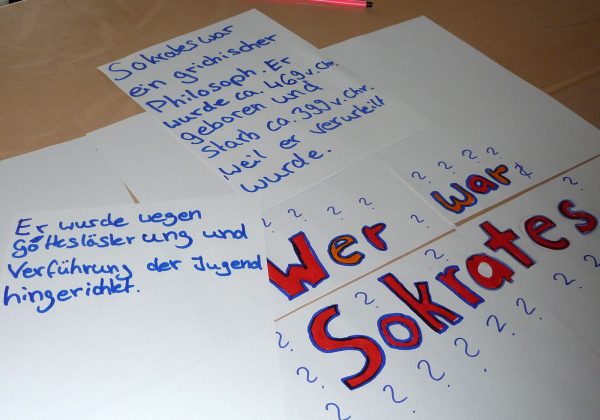 Sokrates war
ein grichischer
Philosoph. Er
wurde ca. 469 v. Chr.
geboren und
starb ca. 399 v. Chr.
weil er verurteilt
wurde.
Er wurde wegen
Gotteslästerung und
Verführung der Jugend
hingerichtet.
? ? ? ? ? ? ? ?
Wer war
Sokrates
? ? ? ? ? ? ? ?